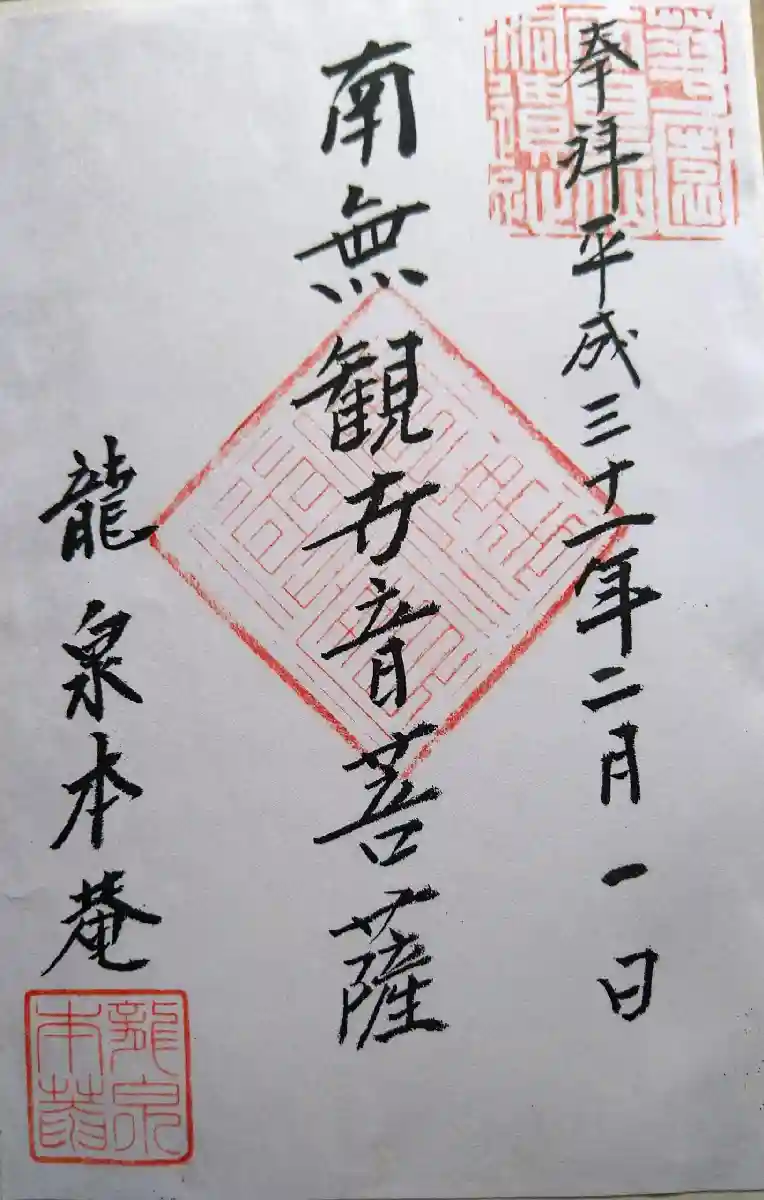 奉拝平成三十一年二月一日
南無観世音菩薩
龍泉本菴
龍泉
本菴